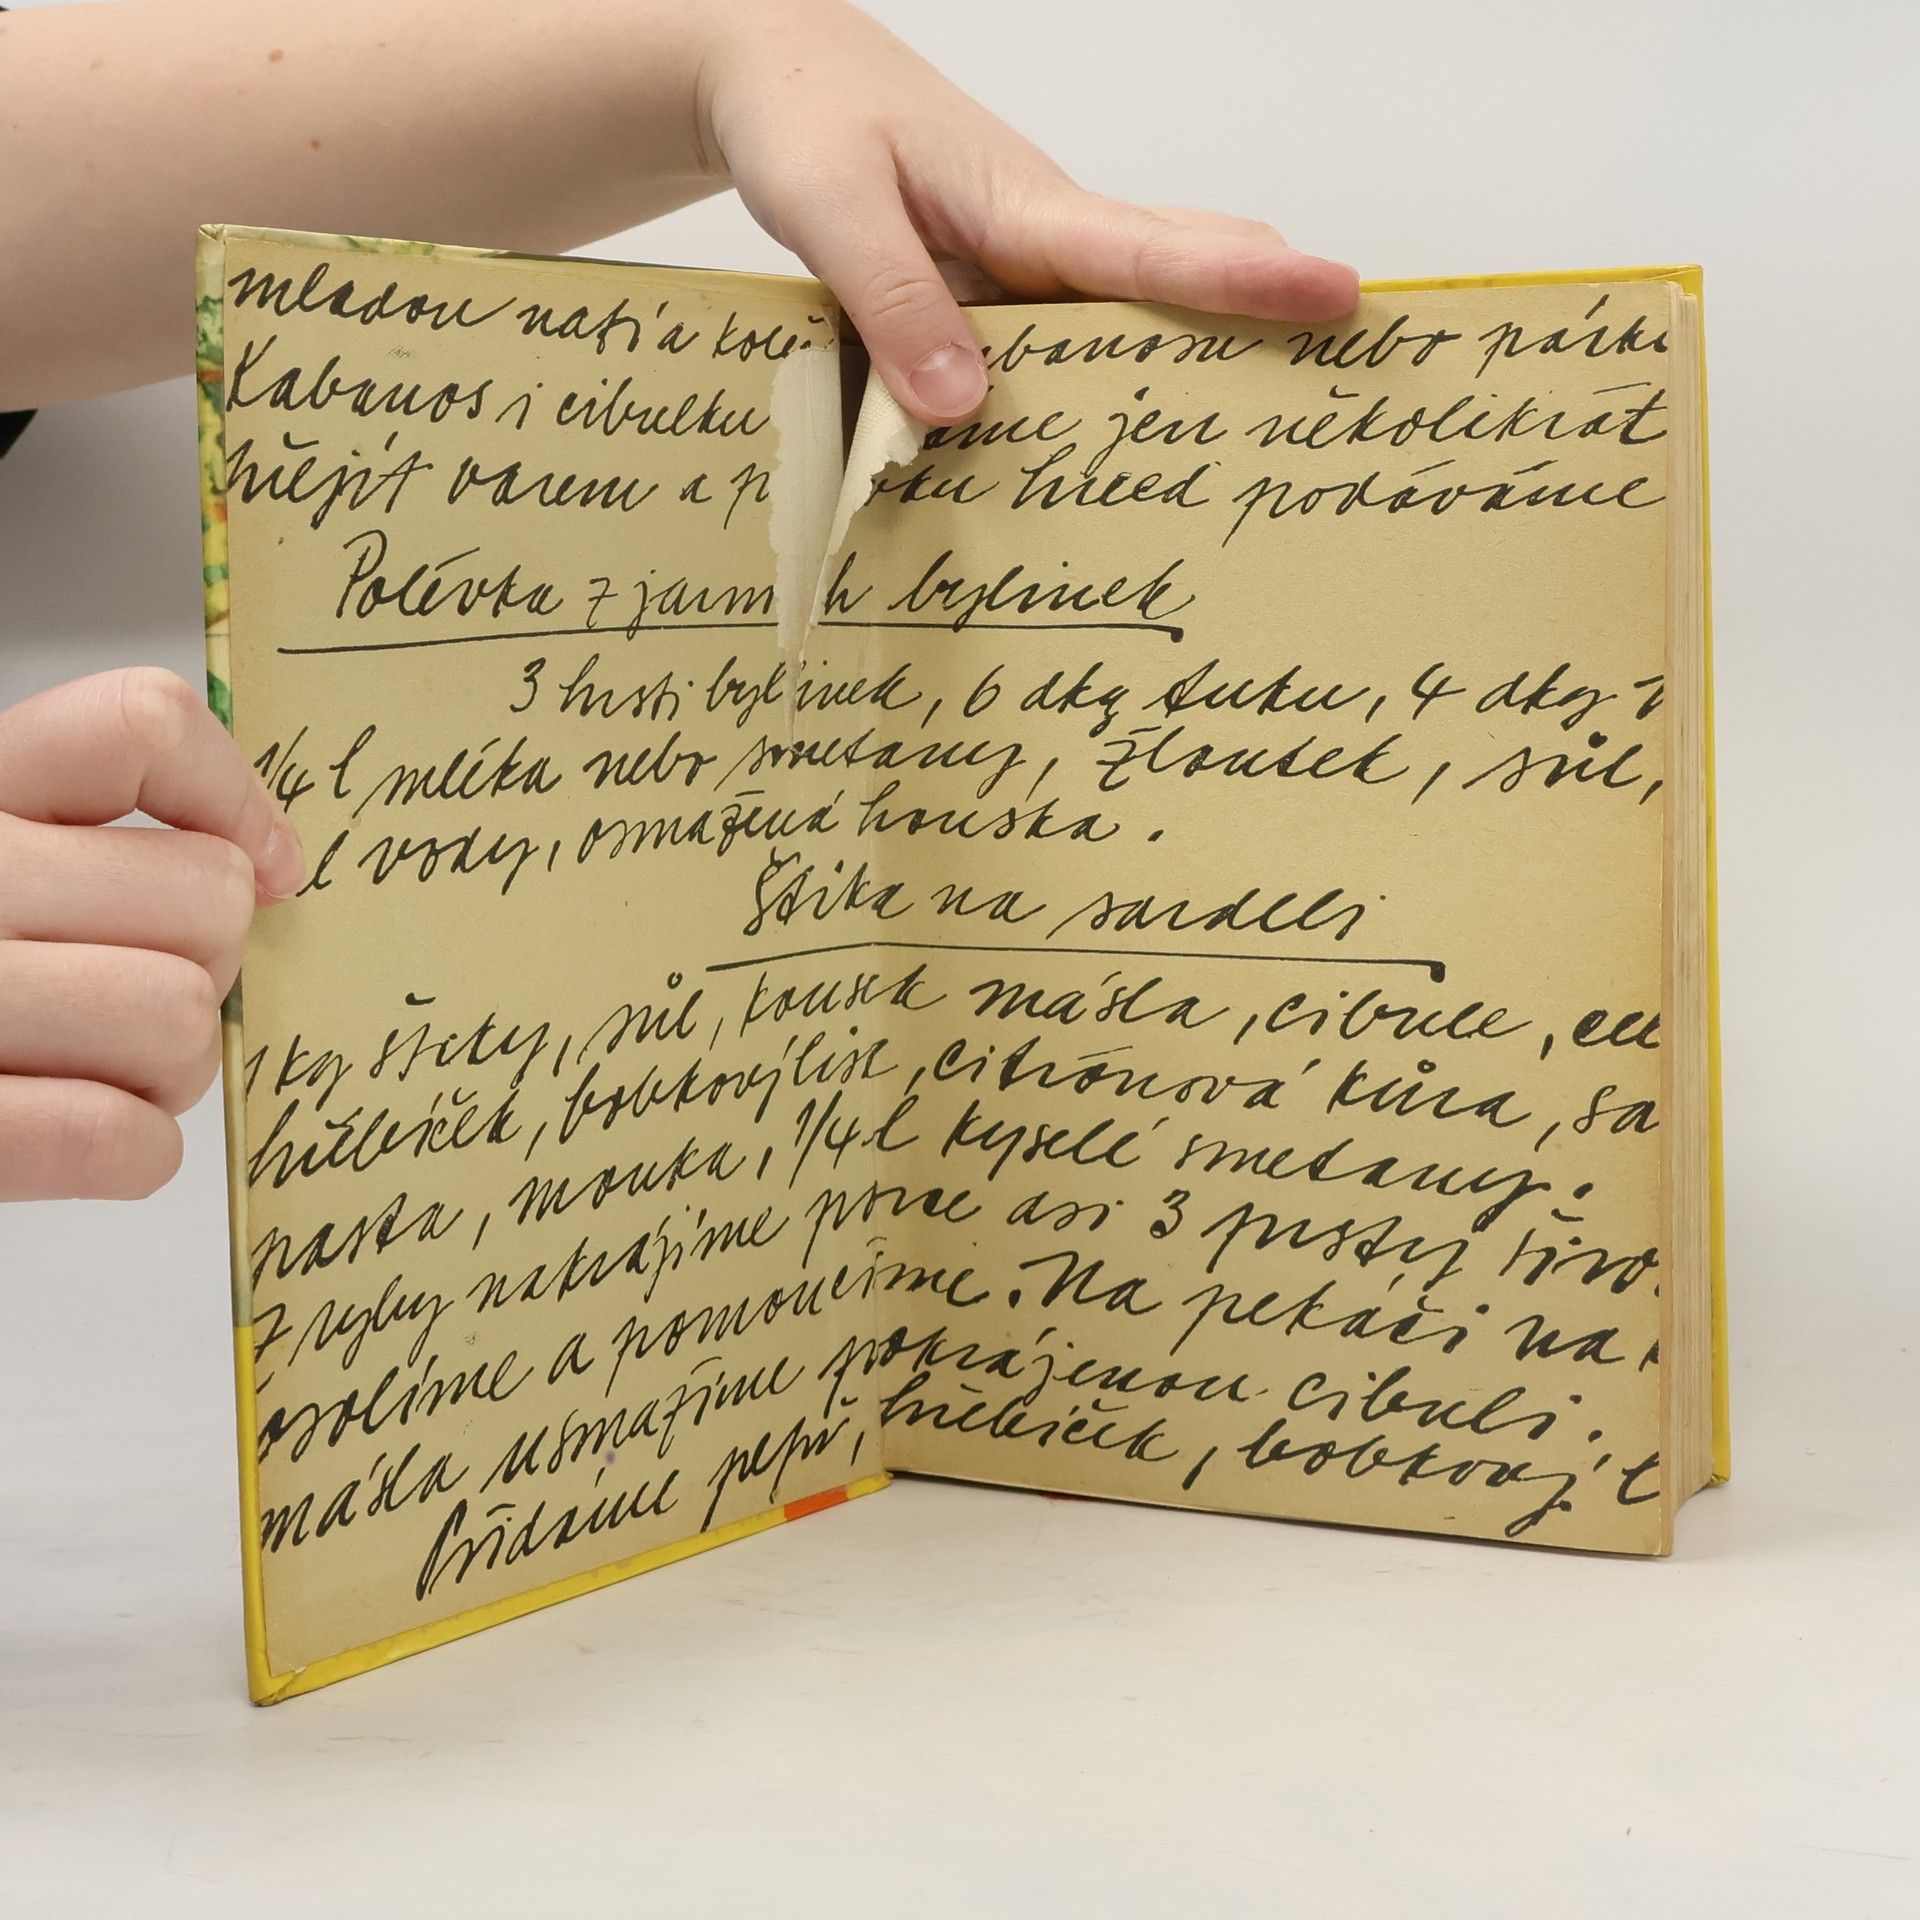 mladou nať a kole
Kabanos i cibulku
banosu nebo párk
áme jen několikrát
přejít varem a p vku hned podáváme
Polévka z jarn h bylinek
3 hrsti bylinek, 6 dkg tuku, 4 dkg
1/4 l mléka nebo smetany, žloutek, sůl,
l vody, osmažená houska.
Štika na sardeli
1 kg štiky, sůl, kousek másla, cibule, cel
hřebíček, bobkový list, citrónová kůra, sa
pasta, mouka, 1/4 l kyselé smetany.
Z ryby nakrájíme porce asi 3 prsty širo
osolíme a pomoučíme. Na pekáči na k
másla usmažíme pokrájenou cibuli.
Přidáme pepř, hřebíček, bobkový l